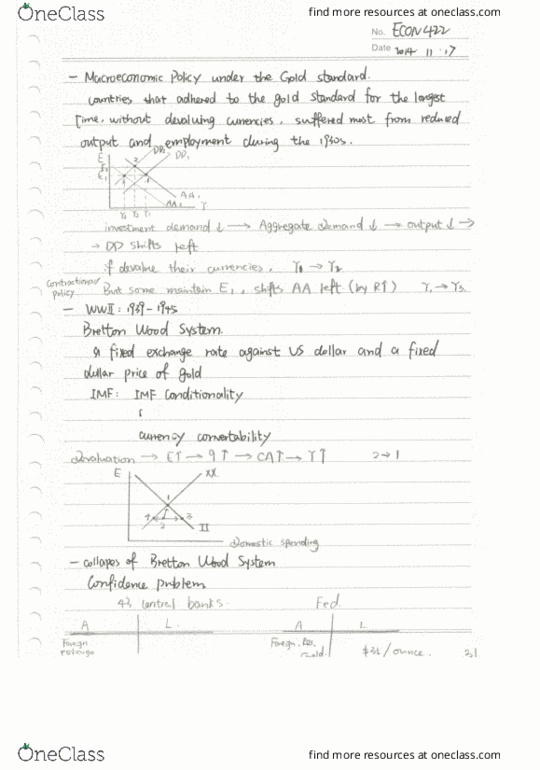 OneClass find more resources at oneclass.com
No. ECON422
Date 2014 11 . 17
- Macroeconomic Policy under the Gold standard.
countries that adhered to the gold standard for the longest
time, without devaluing currencies, suffered most from reduced
output and employment during the 1930s.
E DD2 DD1
2
1
E1
AA1
Y3 Y2 Y1 Y
investment demand ↓ → Aggregate demand ↓ → output ↓ →
→ DD shifts left
if devalue their currencies, Y1 → Y2
Contractionary policy But some maintain E1, shifts AA left (by R↑) Y1 → Y3
- WWII: 1939 - 1945
Bretton Wood System.
a fixed exchange rate against US dollar and a fixed
dollar price of gold
IMF: IMF Conditionality
currency convertability
devaluation → E↑ → q↑ → CA↑ → Y↑ 2→1
E XX
1
4 3
2 II
Domestic spending
- collapes of Bretton Wood System
Confidence problem
central banks. Fed.
A L. A L
Foreign Foreign. Res. $35/ounce.
gold.
OneClass find more resources at oneclass.com